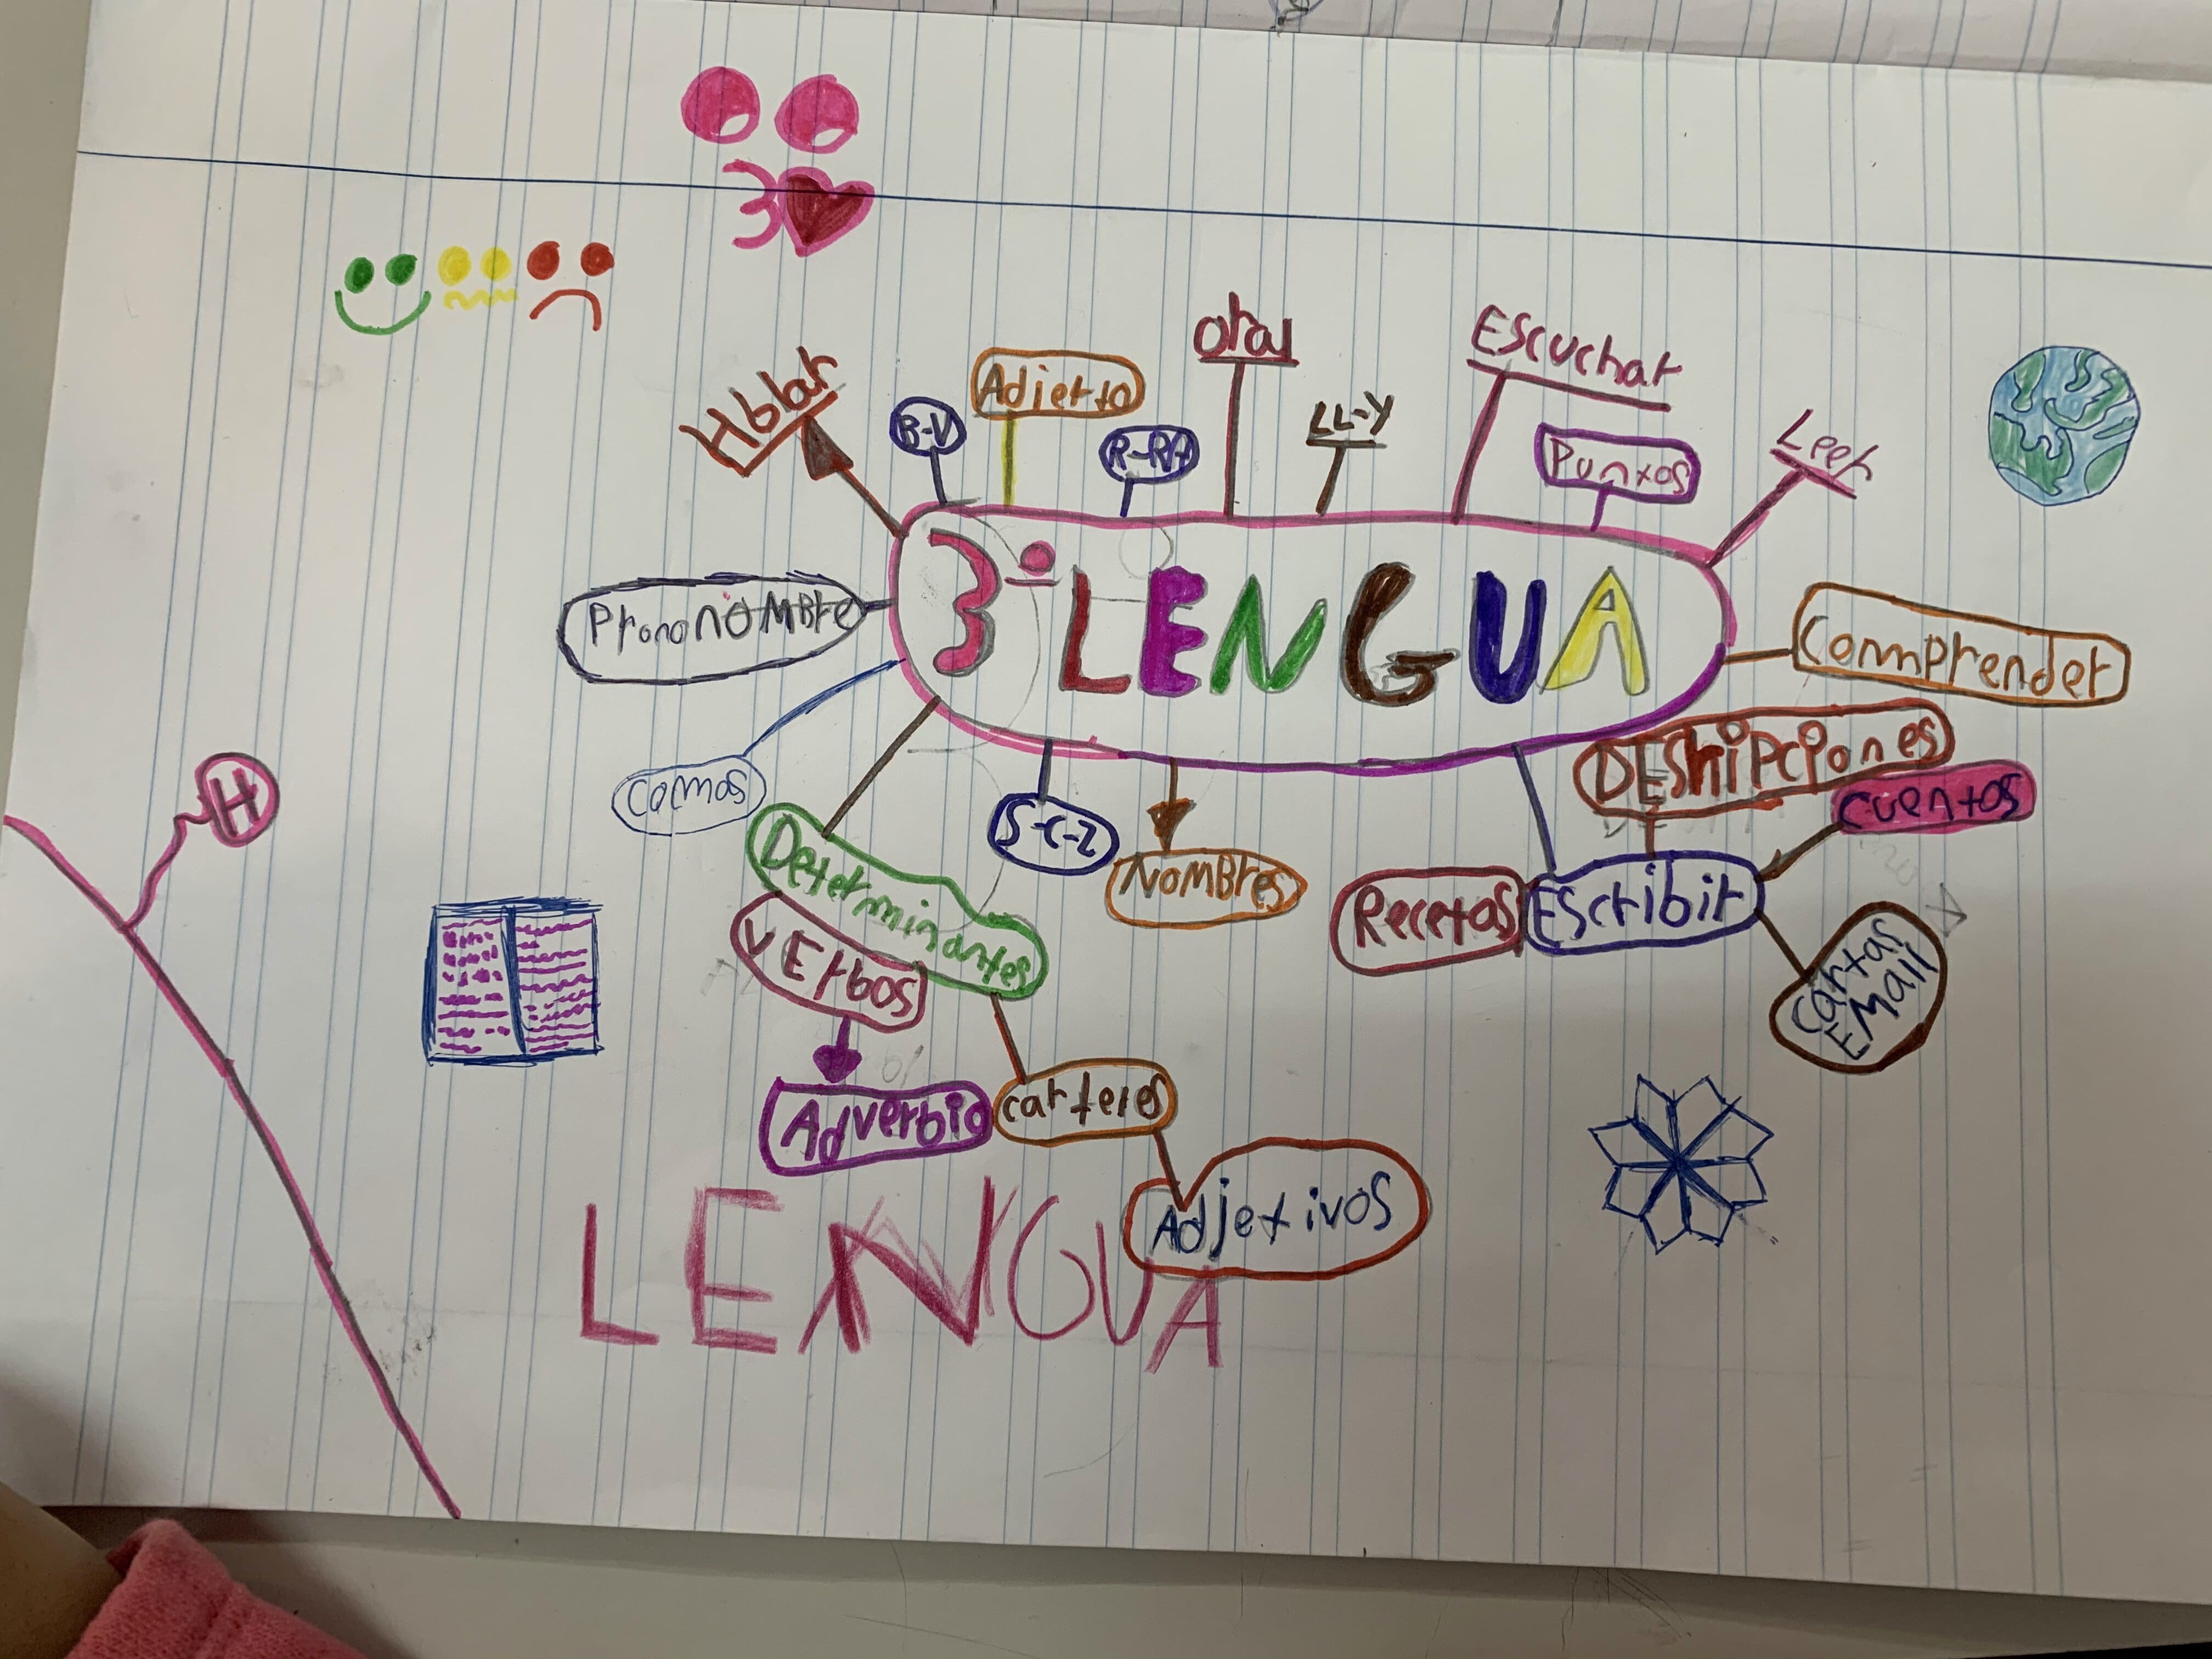 Hblar
B-V
Adjerto
R-RR
oral
LL-y
Escuchar
Punxos
Leer
3º LENGUA
Prononombre
Comnprender
Comos
DEShipciones
cuentos
S-C-Z
Determinantes
NOMBres
Recetas
EScribir
VErbos
cartas
EMail
H
Adverbio
carteles
Adjetivos
LENGUA